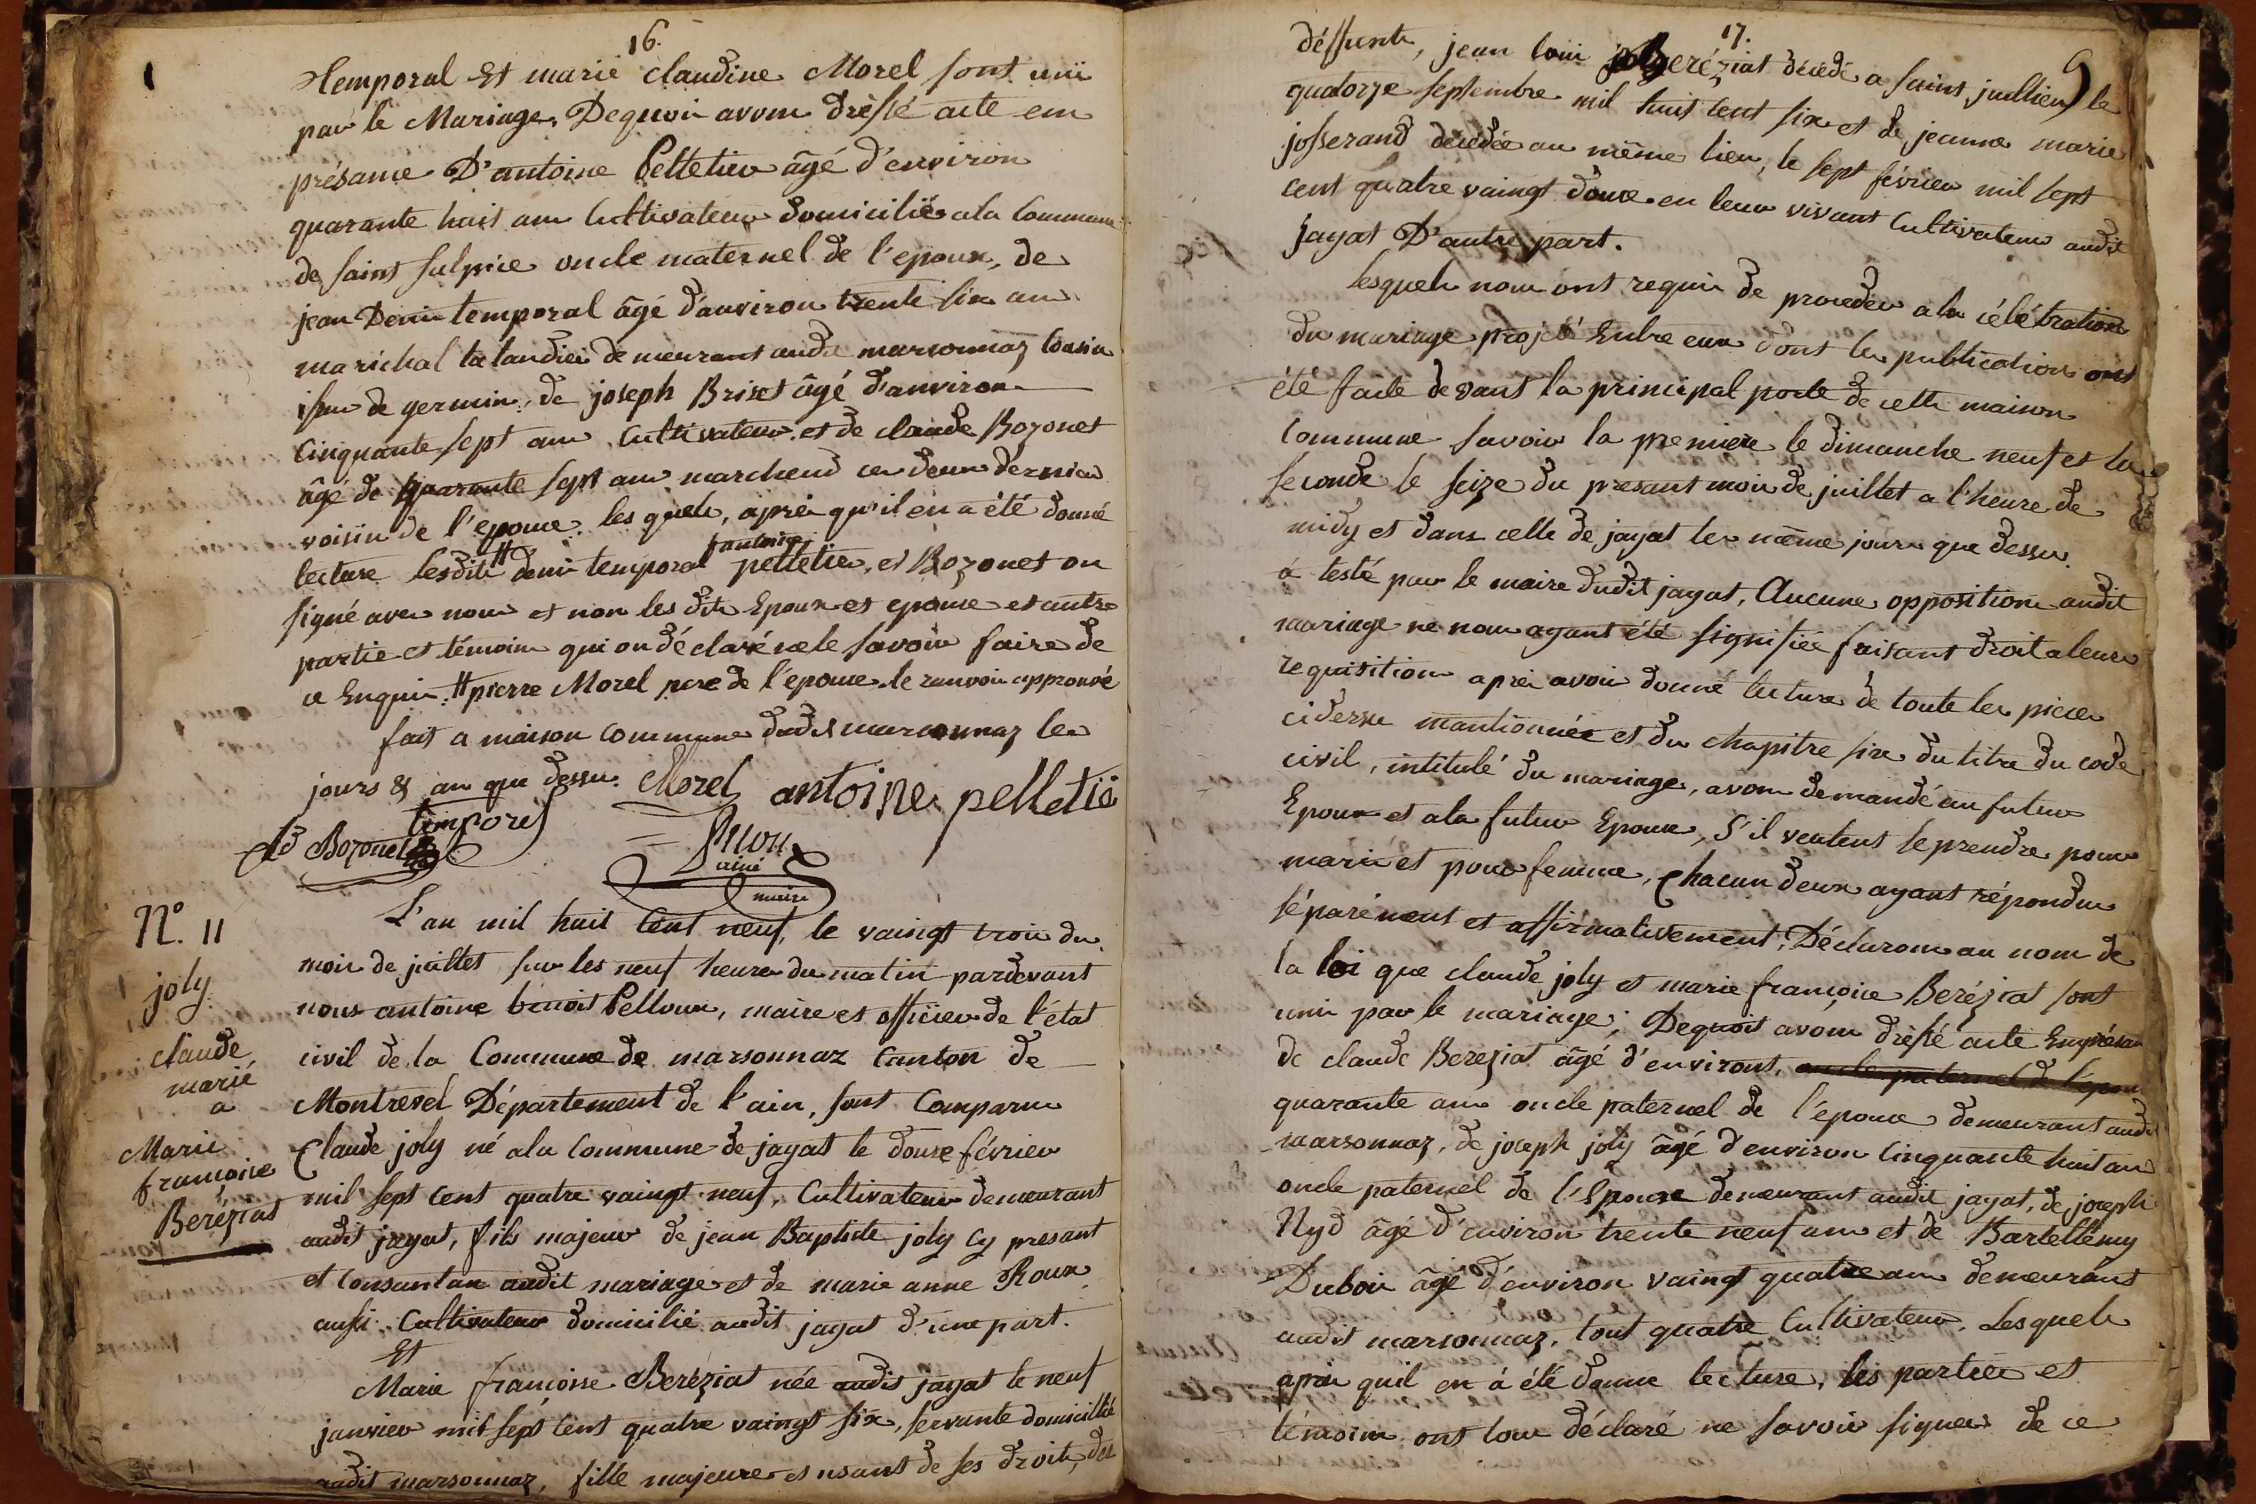 16.
temporal Et marie claudine Morel sont unis
par le Mariage, Dequoi avons drèssé acte en
présance D'antoine Pelletier âgé d'environ
quarante huit ans Cultivateur domicilié a la Commune
de saint sulpice oncle maternel de l'epoux, de
jean Denis temporal âgé d'anviron trente six ans
marichal talandier demeurant audit marsonnaz Cousin
issus de germin, de joseph Briset âgé d'anviron
Cinquante sept ans Cultivateur et de claude Bozonet
âgé de quarante sept ans marchend ces deux dernier
voisin de l'epouse. les quels, après qu'il en a été donné
lecture lesdits # denis temporal antoine pelletier, et Bozonet on
signé avec nous et non les dits Epoux et epouse et autre
partie et témoins qui on déclaré ne le savoir faire de
ce Enquis. # pierre Morel pere de l'epouse le ranvoi approuvé
fait a maison commune dudit marsonnaz les
jours & an que dessus. Morel antoine pelletié
temporel
Cd Bozonet
ainé
maire
N°. 11
joly
claude
marié
a
Marie
francoise
Beréziat
L'an mil huit Cent neuf, le vaingt trois du
mois de juillet sur les neuf heures du matin pardevant
nous antoine benoit Pelloux, maire et officier de l'état
civil de la Commune de marsonnaz Canton de
Montrevel Département de l'ain, sont Comparus
Claude joly né a la Commune de jayat le douze février
mil sept cent quatre vaingt neuf, Cultivateur demeurant
audit jayat, fils majeur de jean Baptiste joly Cy presant
et Consantan audit mariage et de marie anne Roux
aussi Cultivateur domicilié audit jayat d'une part.
Et
Marie françoise Beréziat née audit jayat le neuf
janvier mil sept cent quatre vaingt six, servante domicilié
audit marsonnaz, fille majeure et usant de ses droits, des
17.
9
déffunts, jean loui Beréziat décédé a saint jullien le
quatorze septembre mil huit cent six et de jeanne marie
josserand décédée au même lieu, le sept février mil sept
cent quatre vaingt douze en leur vivant Cultivateur audit
jayat D'autre part.
lesquels nous ont requis de proceder a la célébration
du mariage projeté Entre eux dont les publications ont
été faite devant la principal porte de cette maison
Commune savoir la premiere le dimanche neuf et la
seconde le seize du presant mois de juillet a l'heure de
midy et dans celle de jayat les même jours que dessus.
a testé par le maire dudit jayat, Aucune opposition audit
mariage ne nous ayant été signifiée faisant droit a leur
requisition après avoir donné lecture de toute les pieces
cidessus mantionnée et du chapitre six du titre du code
civil, intitulé du mariage, avons demandé au futur
Epoux et a la futur Epouse, s'il veulent se prendre pour
mari et pour femme, Chacun d'eux ayant répondu
séparément et affirmativement; Déclarons au nom de
la loi que claude joly et marie françoise Beréziat sont
unis par le mariage; Dequoi avons drèssé acte En présan
de claude Bereziat âgé d'environt, oncle paternel de l'epou
quarante ans oncle paternel de l'épouse demeurant audit
marsonnaz, de joseph joly âgé d'environ Cinquante huit ans
oncle paternel de l'Epoux demeurant audit jayat, de joseph
Nyd âgé d'environ trente neuf ans et de Bartellémy
Dubois âgé d'environ vaingt quatre ans demeurant
audit marsonnaz. tout quatre Cultivateur. Lesquels
après quil en a été donné lecture, les parties et
témoins ont tous déclaré ne savoir signer de ce